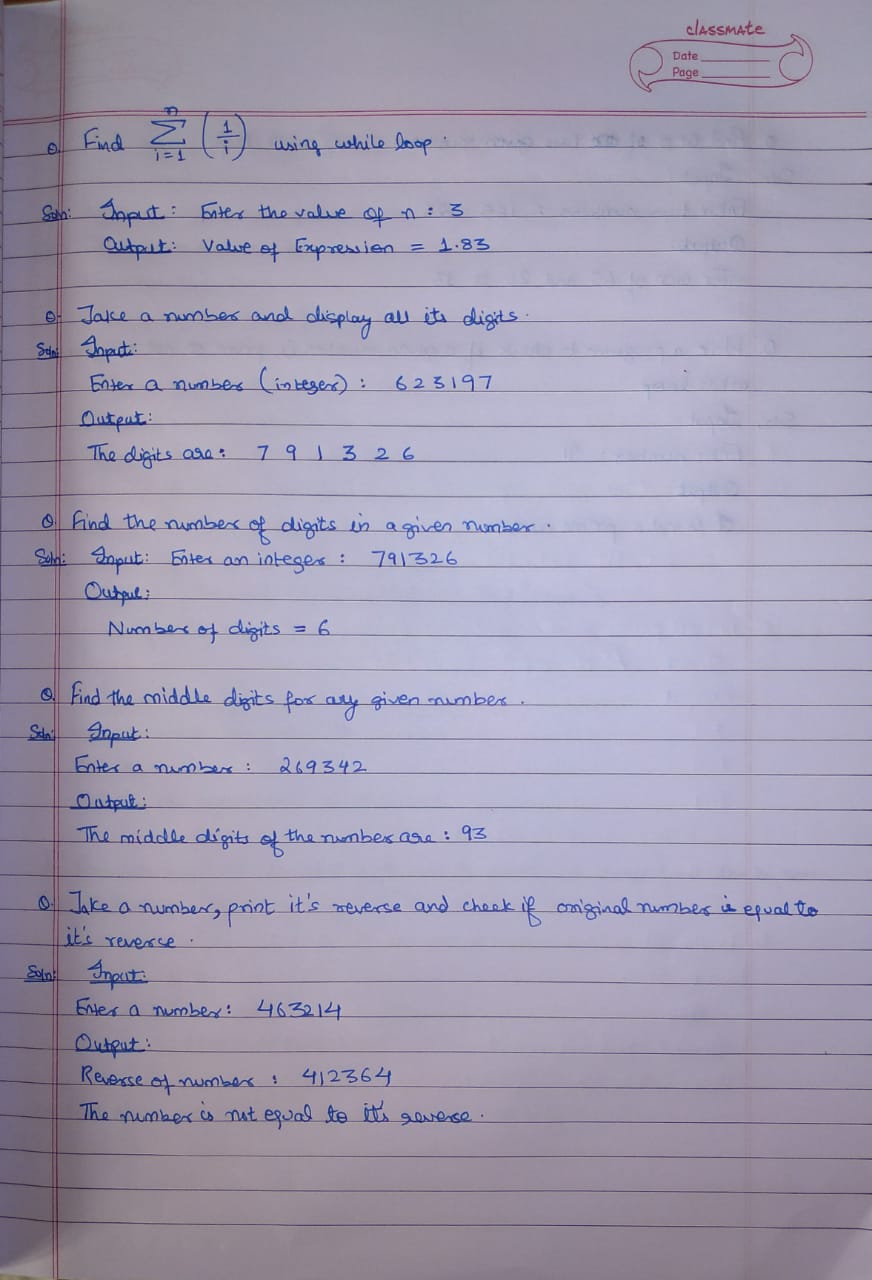 classmate
Date
Page
Q. Find n Σ i=1 (1/i) using while loop.
Soln: Input: Enter the value of n : 3
Output: Value of Expression = 1.83
Q. Take a number and display all its digits.
Soln: Input:
Enter a number (integer) : 623197
Output:
The digits are : 7 9 1 3 2 6
Q. Find the number of digits in a given number.
Soln: Input: Enter an integer : 791326
Output:
Number of digits = 6
Q. Find the middle digits for any given number.
Soln: Input:
Enter a number : 269342
Output:
The middle digits of the number are : 93
Q. Take a number, print it's reverse and check if original number is equal to
it's reverse.
Soln: Input:
Enter a number : 463214
Output:
Reverse of number : 412364
The number is not equal to it's reverse.